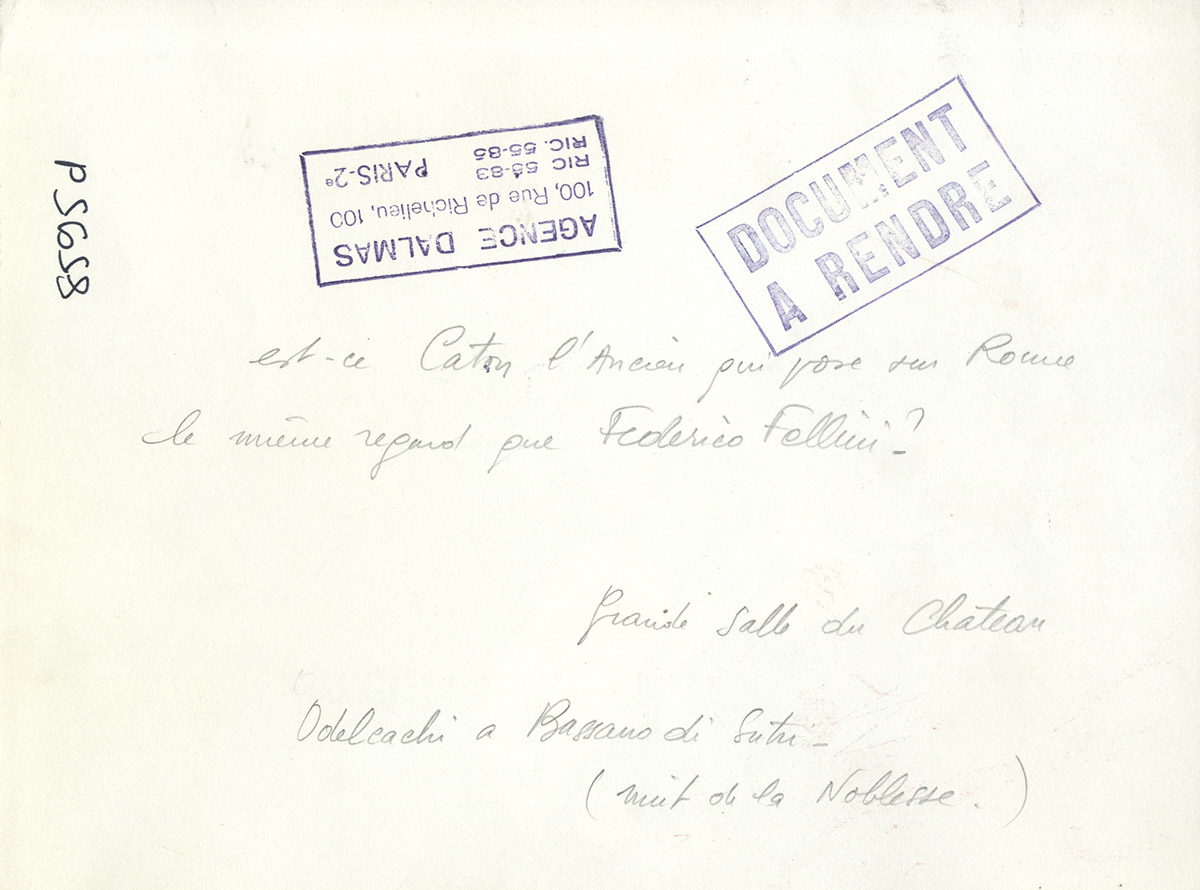 P5658
AGENCE DALMAS
100, Rue de Richelieu, 100
RIC 55-83
RIC. 55-85
PARIS-2e
DOCUMENT
A RENDRE
est-ce Caton l'Ancien qui pose sur Rome
le même regard que Federico Fellini? -
Grande Salle du Château
Odelcachi a Bassano di Sutri -
(nuit de la Noblesse.)